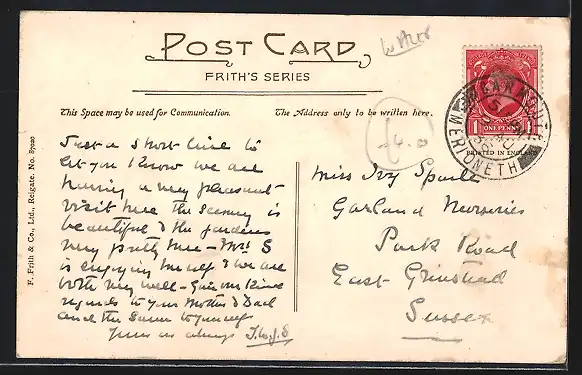 POST CARD
FRITH'S SERIES
This Space may be used for Communication.
The Address only to be written here.
Just a short line to
let you know we are
having a very pleasant
visit here the scenery is
beautiful & the gardens
very pretty here - Mrs S
is enjoying herself & we are
both very well - Give our kind
regards to your Mother & Dad
and the same to yourself
yours as always
Miss Ivy
Garland Nurseries
Park Road
East Grinstead
Sussex
F. Frith & Co., Ltd., Reigate. No. 87020
1 1
ONE PENNY
PRINTED IN ENGLAND
BARMOUTH
MERIONETH